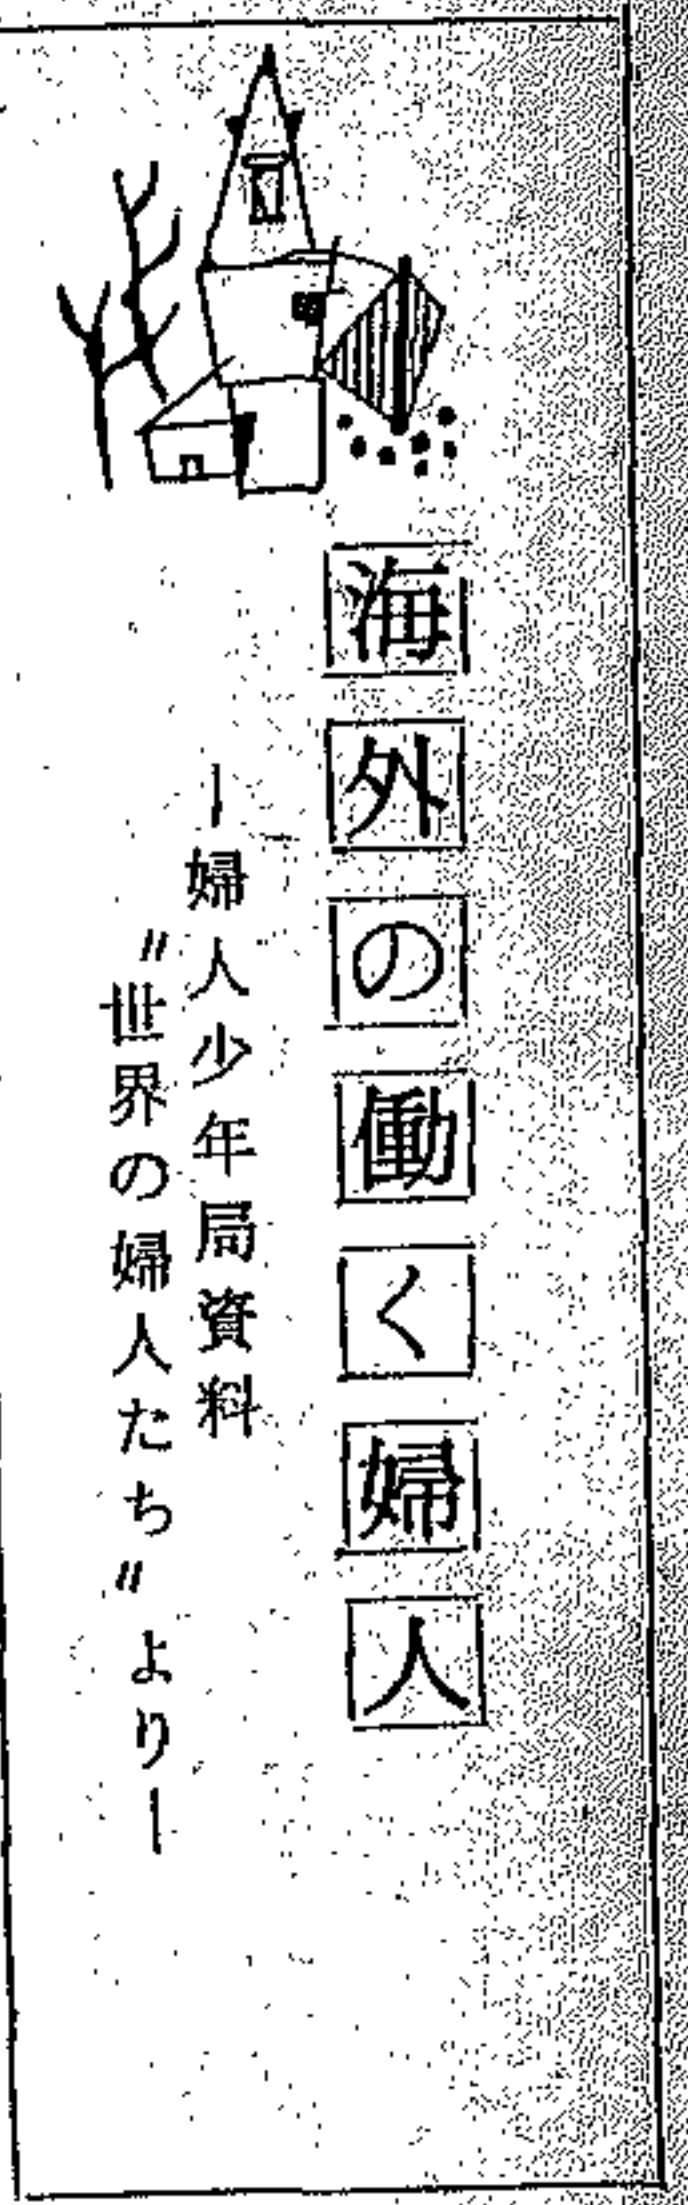 海外の働く婦人
ー婦人少年局資料
〝世界の婦人たち〟よりー